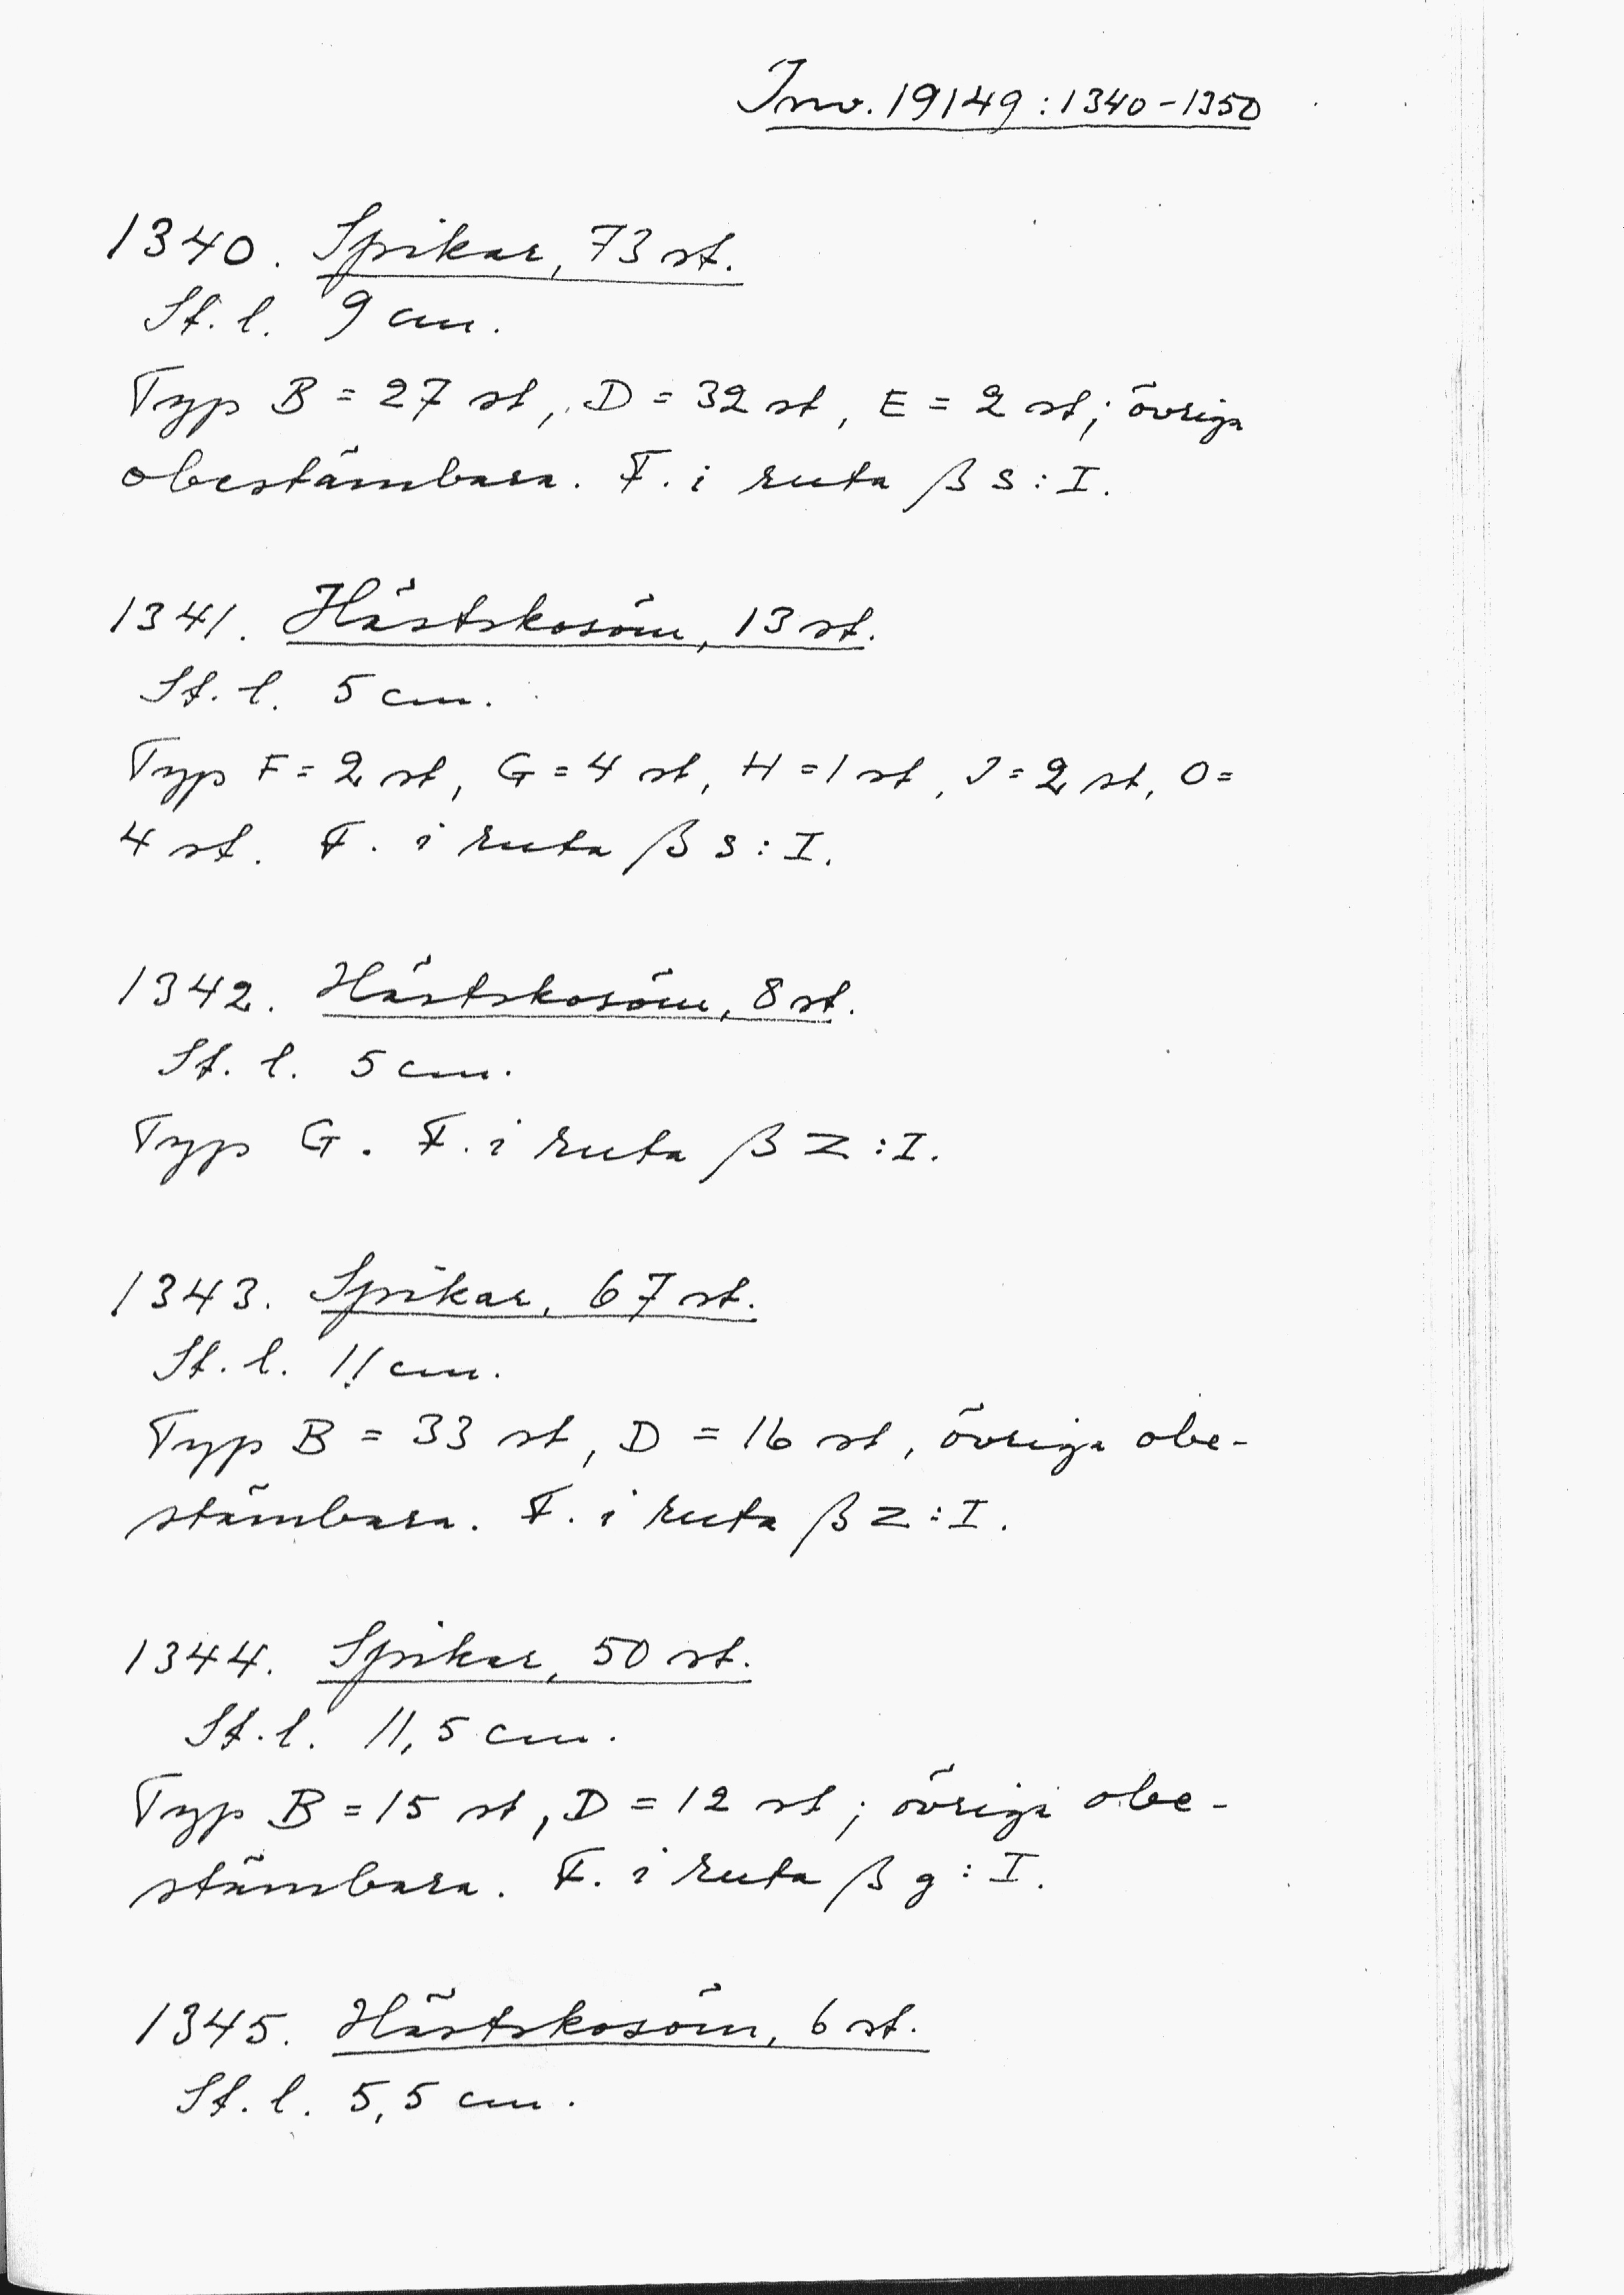 Inv. 19149:1340-1350
1340. Spikar, 73 st.
St. l. 9 cm.
Typ B = 27 st, D = 32 st, E = 2 st; övriga
obestämbara. F. i ruta β s:I.
1341. Hästskosöm, 13 st.
St. l. 5 cm.
Typ F = 2 st, G = 4 st, H = 1 st, J = 2 st, O =
4 st. F. i ruta β s:I.
1342. Hästskosöm, 8 st.
St. l. 5 cm.
Typ G. F. i ruta β z:I.
1343. Spikar, 67 st.
St. l. 11 cm.
Typ B = 33 st, D = 16 st, övriga obe-
stämbara. F. i ruta β z:I.
1344. Spikar, 50 st.
St. l. 11,5 cm.
Typ B = 15 st, D = 12 st; övriga obe-
stämbara. F. i ruta β g:I.
1345. Hästskosöm, 6 st.
St. l. 5,5 cm.